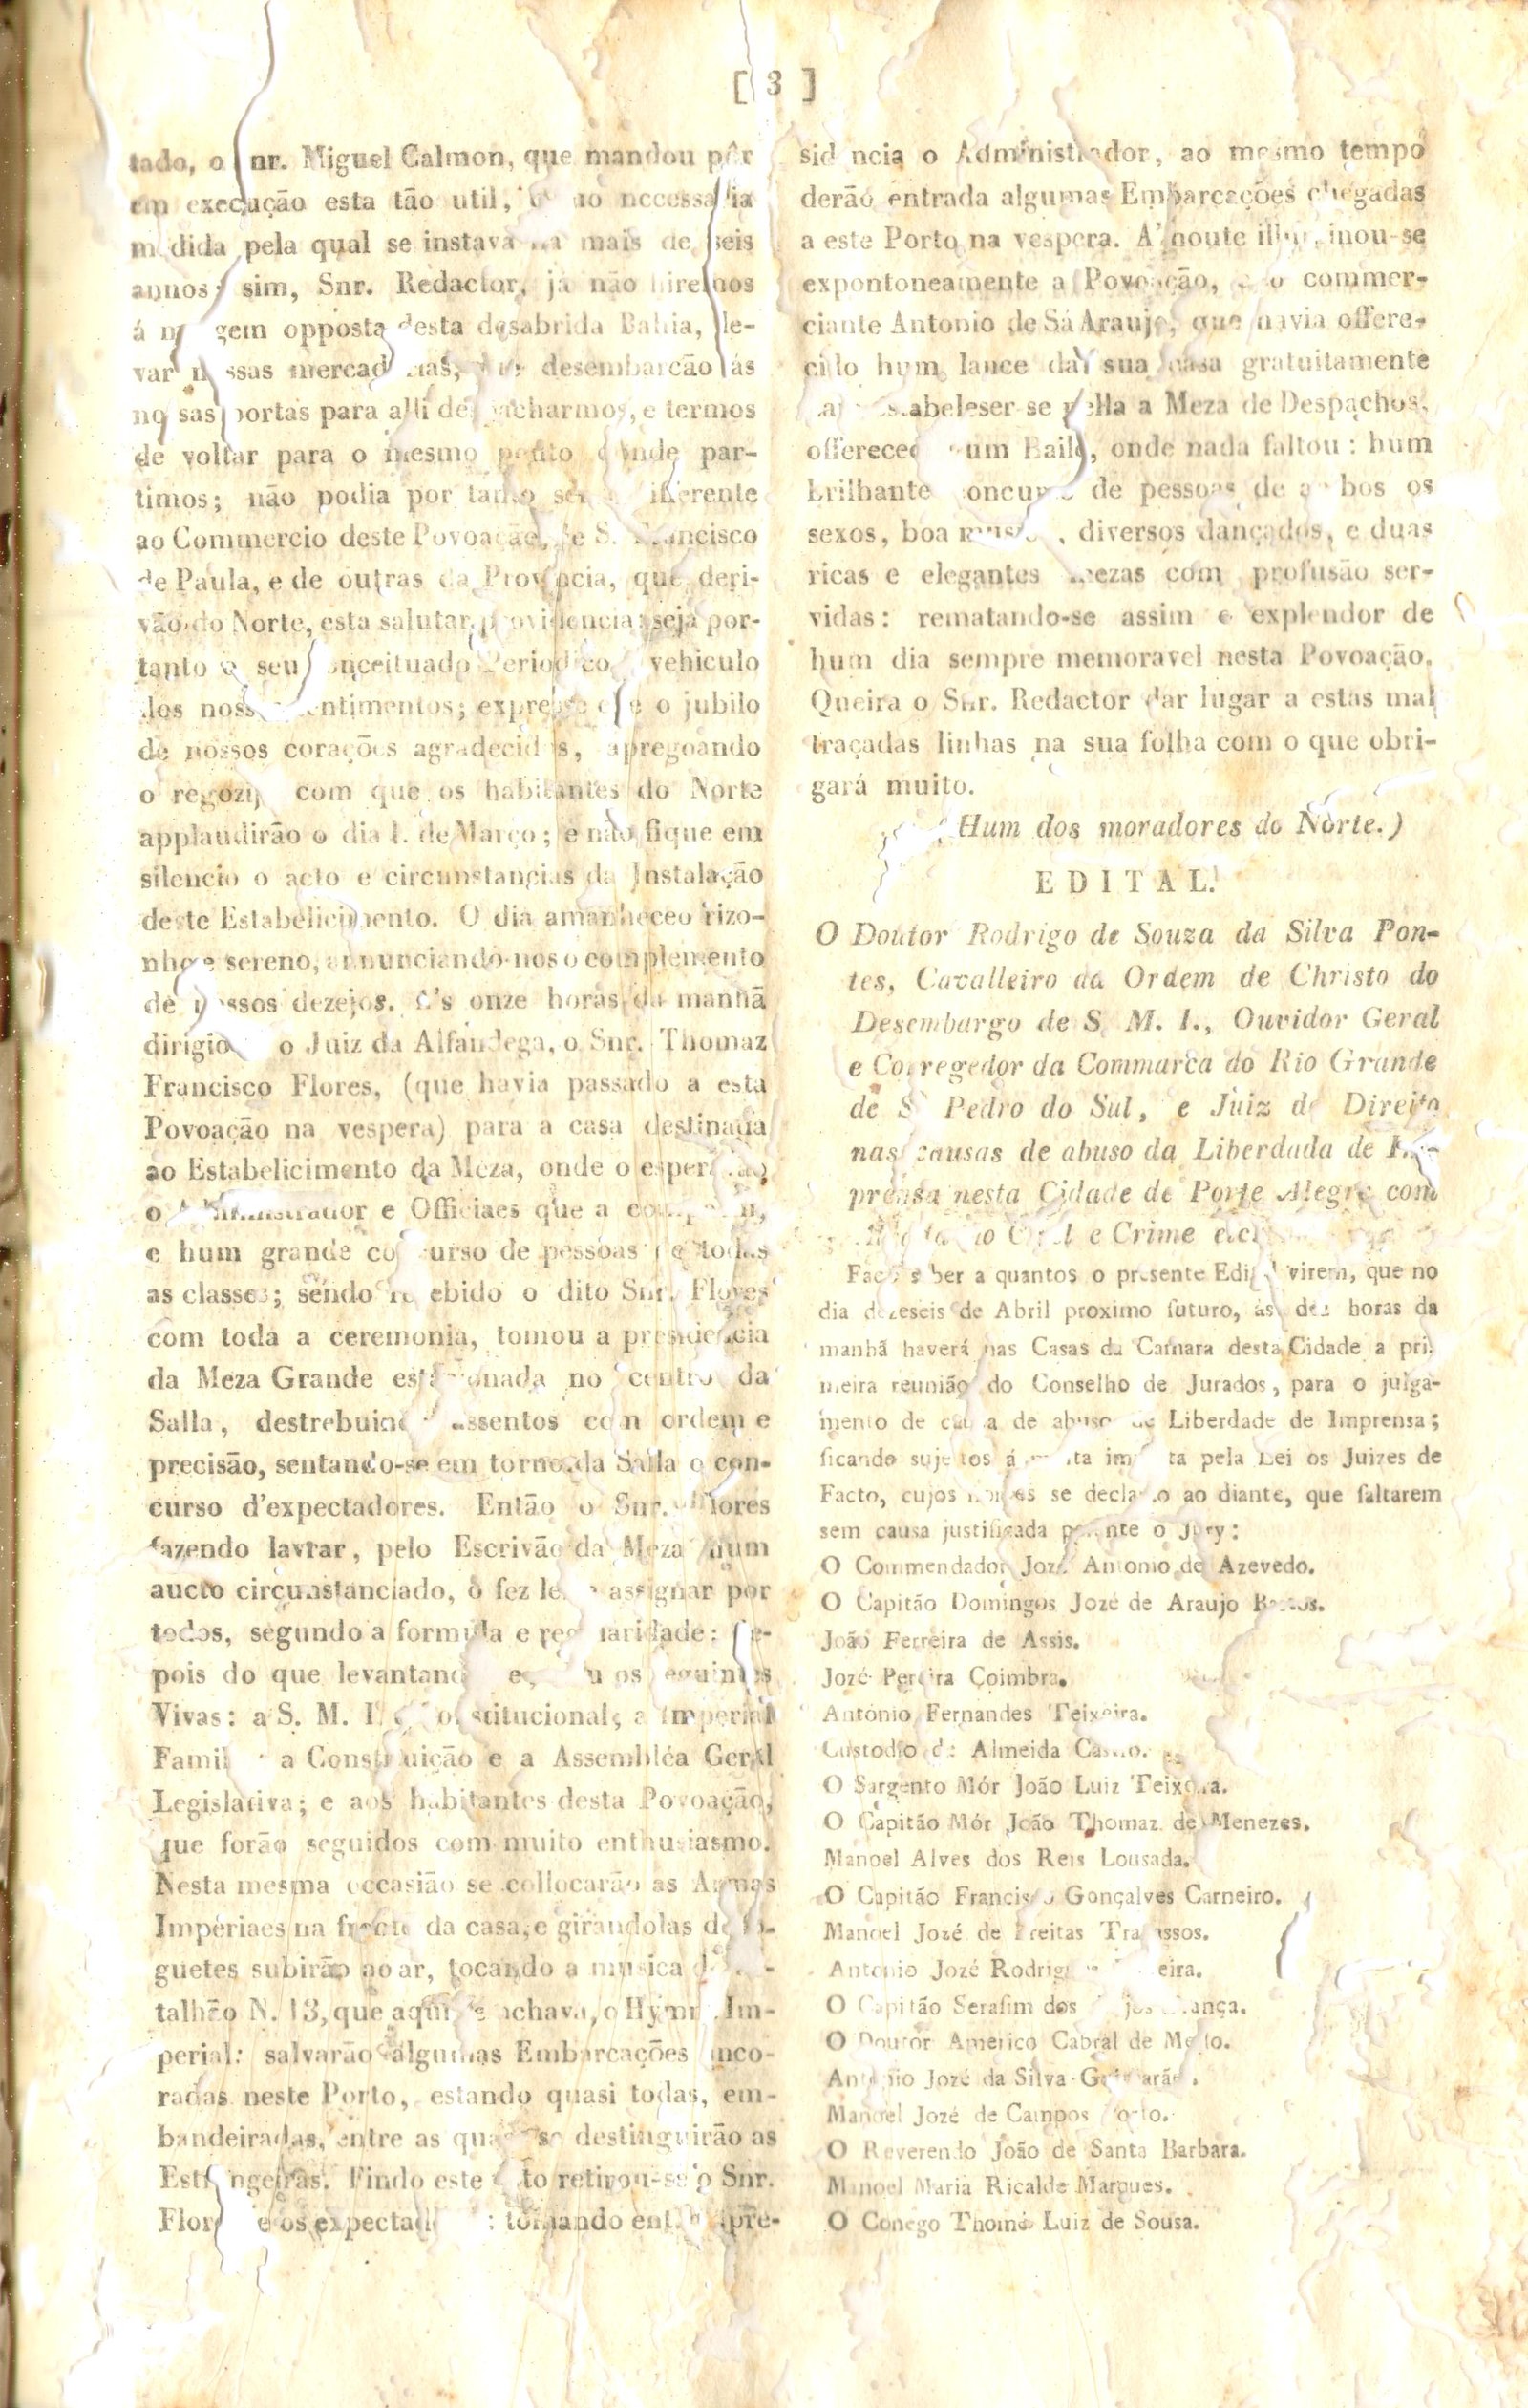 [ 3 ]
tado, o nr. Miguel Calmon, que mandou pôr
em execução esta tão util,
dida pela qual se instava mais de seis
annos; sim, Snr. Redactor, já não hiremos
á opposta desta desabrida Bahia, le-
var desembarcão ás
portas para alli despacharmos, e termos
de voltar para o mesmo ponto donde par-
timos; não podia por tanto ser
ao Commercio deste Povoação, de S. Francisco
de Paula, e de outras da Provincia, que deri-
vão do Norte, esta salutar providencia: seja por-
tanto o seu Periodico vehiculo
dos o jubilo
de nossos corações agradecidos, apregoando
o com que os habitantes do Norte
applaudirão o dia 1. de Março; e não fique em
silencio o acto e circunstancias da Instalação
deste Estabelicimento. O dia amanheceo rizo-
nho e sereno, annunciando-nos o complemento
de nossos dezejos. A's onze horas da manhã
o Juiz da Alfandega, o Snr. Thomaz
Francisco Flores, (que havia passado a esta
Povoação na vespera) para a casa destinada
ao Estabelicimento da Meza, onde o
o e Officiaes que a
e hum grande concurso de pessoas de todas
as classes; sendo o dito Snr. Flores
com toda a ceremonia, tomou a presidencia
da Meza Grande no centro da
Salla, assentos com ordem e
precisão, sentando-se em torno da Salla o con-
curso d'expectadores. Então o Snr. Flores
fazendo lavrar, pelo Escrivão da Meza hum
aucto circunstanciado, o fez ler e assignar por
todos, segundo a formula e regularidade: de-
pois do que os seguintes
Vivas: a S. M. I. Constitucional; a Imperial
a Constituição e a Assembléa Geral
Legislativa; e aos habitantes desta Povoação,
que forão seguidos com muito enthusiasmo.
Nesta mesma occasião se collocarão as Armas
Imperiaes na frente da casa, e girandolas de fo-
guetes subirão ao ar, tocando a musica do Ba-
talhão N. 13, que aqui se achava, o Hymno Im-
perial: salvarão algumas Embarcações anco-
radas neste Porto, estando quasi todas, em-
bandeiradas, entre as quaes se destinguirão as
Estrangeiras. Findo este acto retirou-se o Snr.
Flores e os tomando pre-
sidencia o Administrador, ao mesmo tempo
derão entrada algumas Embarcações chegadas
a este Porto na vespera. A' noute illuminou-se
expontoneamente a Povoação, e o commer-
ciante Antonio de Sá Araujo, que havia offere-
cido hum lance da sua casa gratuitamente
estabeleser-se nella a Meza de Despachos,
offereceo hum Baile, onde nada faltou: hum
brilhante de pessoas de ambos os
sexos, boa musica, diversos dançados, e duas
ricas e elegantes mezas com profusão ser-
vidas: rematando-se assim e explendor de
hum dia sempre memoravel nesta Povoação.
Queira o Snr. Redactor dar lugar a estas mal
traçadas linhas na sua folha com o que obri-
gará muito.
(Hum dos moradores do Norte.)
EDITAL.
O Doutor Rodrigo de Souza da Silva Pon-
tes, Cavalleiro da Ordem de Christo do
Desembargo de S. M. I., Ouvidor Geral
e Corregedor da Commarca do Rio Grande
de S. Pedro do Sul, e Juiz de Direito
nas causas de abuso da Liberdada de Im-
prensa nesta Cidade de Porte Alegre com
e Crime etc.
Faço saber a quantos o presente Edital virem, que no
dia dezeseis de Abril proximo futuro, ás dez horas da
manhã haverá nas Casas da Camara desta Cidade a pri-
meira reunião do Conselho de Jurados, para o julga-
mento de causa de abuso de Liberdade de Imprensa;
ficando sujeitos á multa imposta pela Lei os Juizes de
Facto, cujos nomes se declarão ao diante, que faltarem
sem causa justificada perante o Jury:
O Commendador Jozé Antonio de Azevedo.
O Capitão Domingos Jozé de Araujo Bastos.
João Ferreira de Assis.
Jozé Pereira Coimbra.
Antonio Fernandes Teixeira.
Custodio de Almeida Castro.
O Sargento Mór João Luiz Teixeira.
O Capitão Mór João Thomaz de Menezes.
Manoel Alves dos Reis Lousada.
O Capitão Francisco Gonçalves Carneiro.
Manoel Jozé de Freitas Travassos.
Antonio Jozé
O Capitão Serafim dos
O Doutor Americo Cabral de Mello.
Antonio Jozé da Silva Guimarães.
Manoel Jozé de Campos Porto.
O Reverendo João de Santa Barbara.
Manoel Maria Ricalde Marques.
O Conego Thomé Luiz de Sousa.